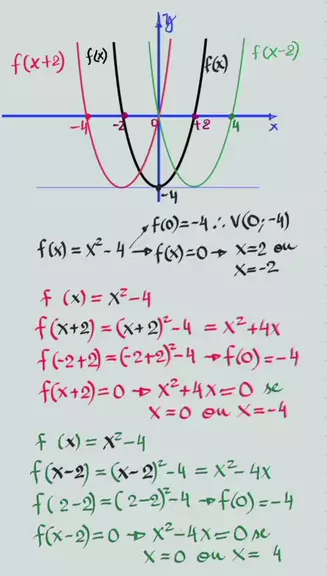 y
f(x+2) f(x) f(x) f(x-2)
-4 -2 0 +2 4 x
-4
f(0)=-4 ∴ V(0;-4)
f(x) = x²-4 → f(x)=0 → x=2 ou
x=-2
f (x) = x²-4
f(x+2) = (x+2)²-4 = x²+4x
f(-2+2)=(-2+2)²-4 → f(0)=-4
f(x+2)=0 → x²+4x=0 se
x=0 ou x=-4
f (x) = x²-4
f(x-2) = (x-2)²-4 = x²-4x
f(2-2)=(2-2)²-4 → f(0)=-4
f(x-2)=0 → x²-4x=0 se
x=0 ou x= 4